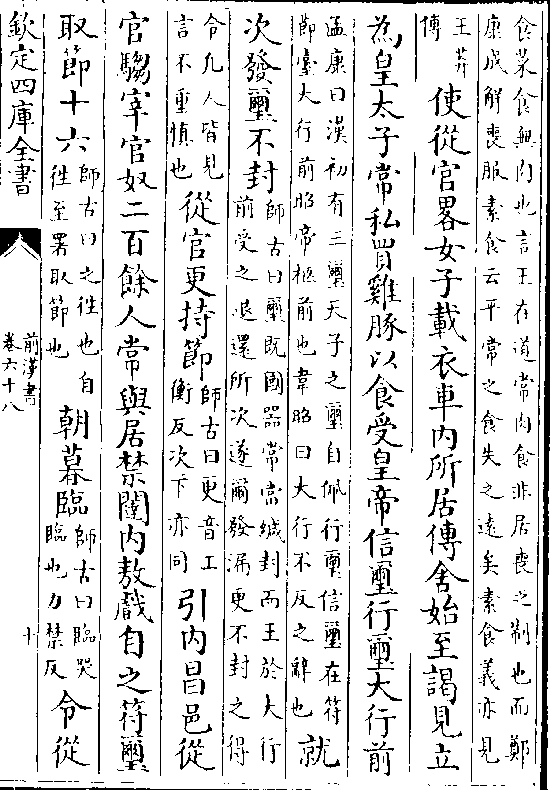 食菜食無肉也言王在道常肉食非居喪之制也而鄭
康成解喪服素食云平常之食失之遠矣素食義亦見
王莽
傳
使從官畧女子載衣車內所居傳舍始至謁見立
為皇太子常私買雞豚以食受皇帝信璽行璽大行前
孟康曰漢初有三璽天子之璽自佩行璽信璽在符
節臺大行前昭帝柩前也韋昭曰大行不反之辭也
就
次發璽不封
師古曰璽既國器常當緘封而王於大行
前受之退還所次遂爾發漏更不封之得
令凡人皆見
言不重慎也
從官更持節
師古曰更音工
衡反次下亦同
引內昌邑從
官騶宰官奴二百餘人常與居禁闥內敖戲自之符璽
取節十六
師古曰之徃也自
徃至署取節也
朝暮臨
師古曰臨哭
臨也力禁反
令從
欽定四庫全書
前漢書
卷六十八
十